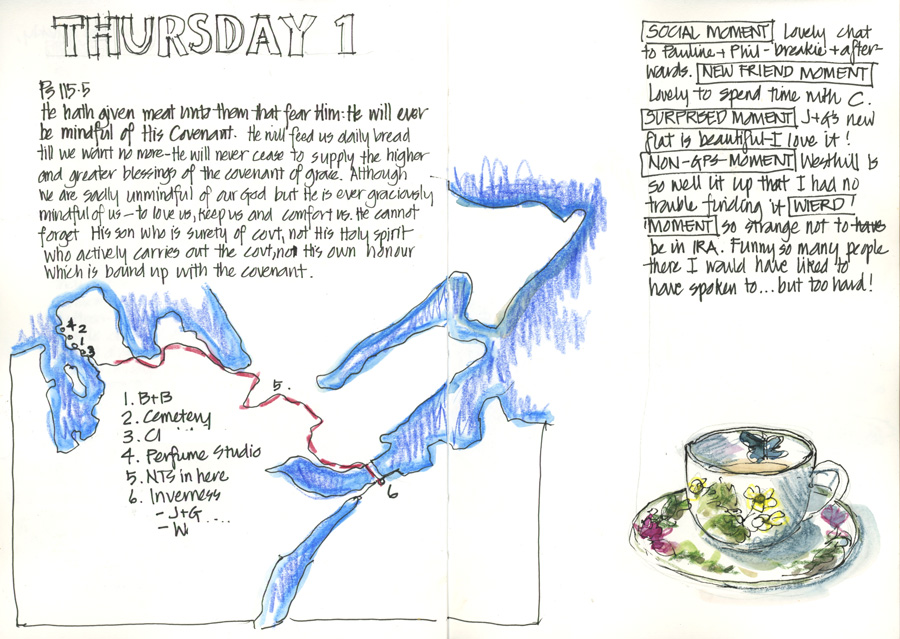 THURSDAY 1
Ps 115.5
He hath given meat unto them that fear Him: He will ever
be mindful of His Covenant. He will feed us daily bread
till we want no more - He will never cease to supply the higher
and greater blessings of the covenant of grace. Although
we are sadly unmindful of our God but He is ever graciously
mindful of us - to love us, keep us and comfort us. He cannot
forget His son who is surety of covt, not His Holy spirit
who actively carries out the covt, not His own honour
which is bound up with the covenant.
4
2
1
3
5.
6
1. B+B
2. Cemetery
3. CI
4. Perfume Studio
5. NTS in here
6. Inverness
- J+G ....
- W
SOCIAL MOMENT Lovely chat
to Pauline + Phil - breakie + after-
wards. NEW FRIEND MOMENT
Lovely to spend time with C.
SURPRISED MOMENT J+G's new
flat is beautiful - I love it!
NON-GPS-MOMENT Westhill is
so well lit up that I had no
trouble finding it WIERD!
MOMENT so strange not to have
be in IRA. Funny so many people
there I would have liked to
have spoken to... but too hard!